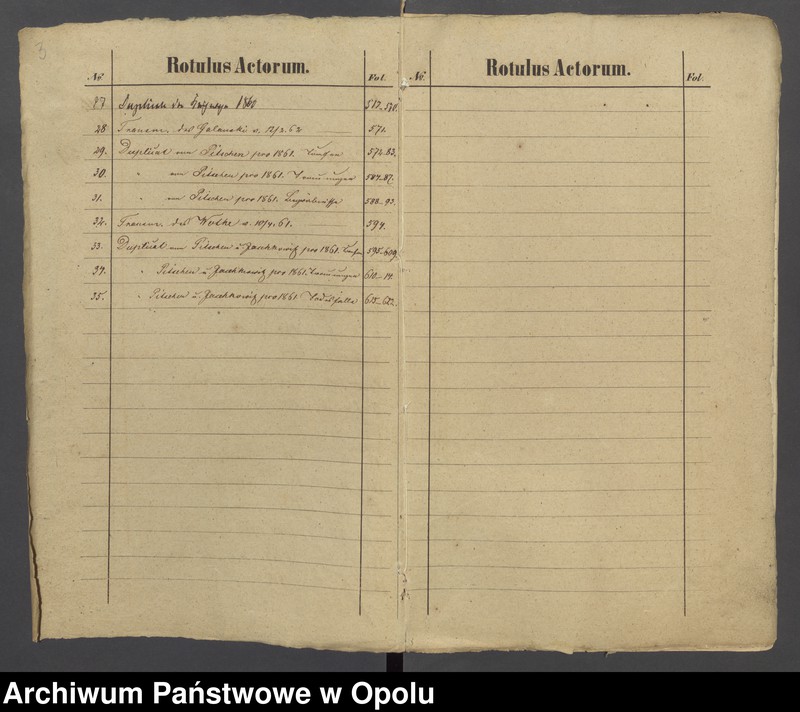 3
Rotulus Actorum.
№ Fol.
27 1860 517-570.
28 Transm. des Galanski v. 12/2. 62 571.
29. Duplicat von Pitschen pro 1861. Taufen 572-83.
30. " von Pitschen pro 1861. Trauungen 584-87.
31. " von Pitschen pro 1861. Begräbnisse 588-93.
32. Transm. des Wuthe v. 10/4. 61. 594.
33. Duplicat von Pitschen u. Jaschkowitz pro 1861. Taufen 595-609.
34. " Pitschen u. Jaschkowitz pro 1861. Trauungen 610-14.
35. " Pitschen u. Jaschkowitz pro 1861 Todesfälle 615-622.
Rotulus Actorum.
№ Fol.
Archiwum Państwowe w Opolu